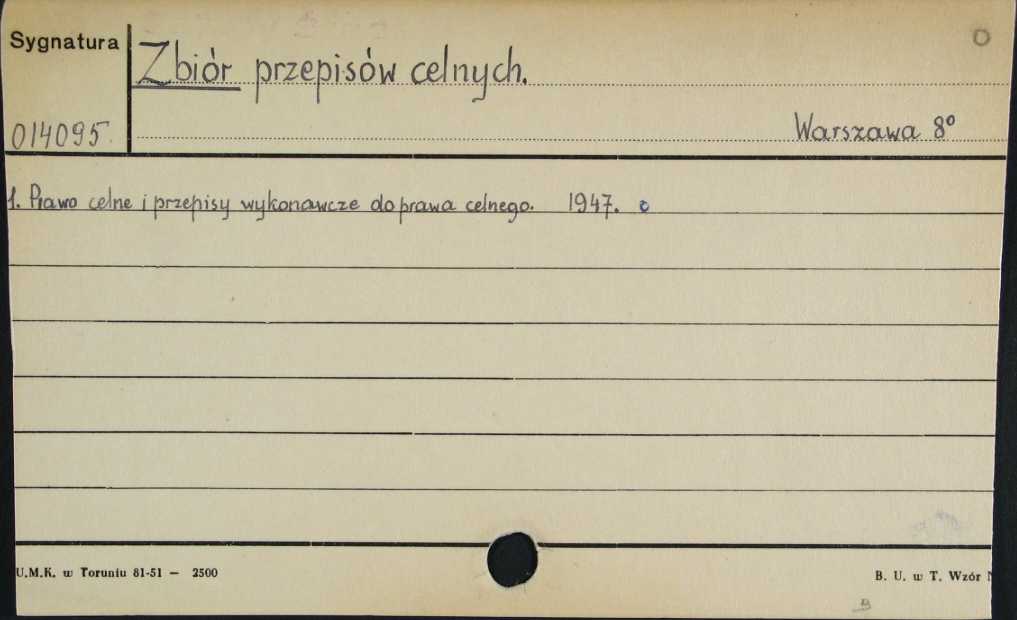 Sygnatura
Zbiór przepisów celnych.
014095.
Warszawa 8º
1. Prawo celne i przepisy wykonawcze do prawa celnego. 1947.
U.M.K. w Toruniu 81-51 — 2500
B. U. w T. Wzór N
B